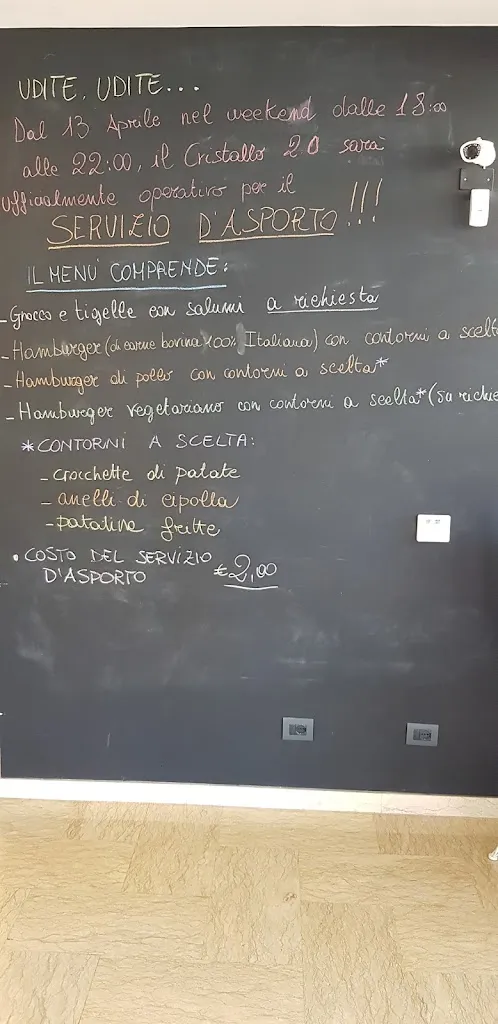 UDITE, UDITE...
Dal 13 Aprile nel weekend dalle 18:00
alle 22:00, il Cristallo 2.0 sarà
ufficialmente operativo per il
SERVIZIO D'ASPORTO!!!
IL MENU' COMPRENDE:
- Gnocco e tigelle con salumi a richiesta
- Hamburger (di carne bovina 100% Italiana) con contorni a scelt
- Hamburger di pollo con contorni a scelta*
- Hamburger vegetariano con contorni a scelta* (su richie
* CONTORNI A SCELTA:
- crocchette di patate
- anelli di cipolla
- patatine fritte
• COSTO DEL SERVIZIO
D'ASPORTO €2,00